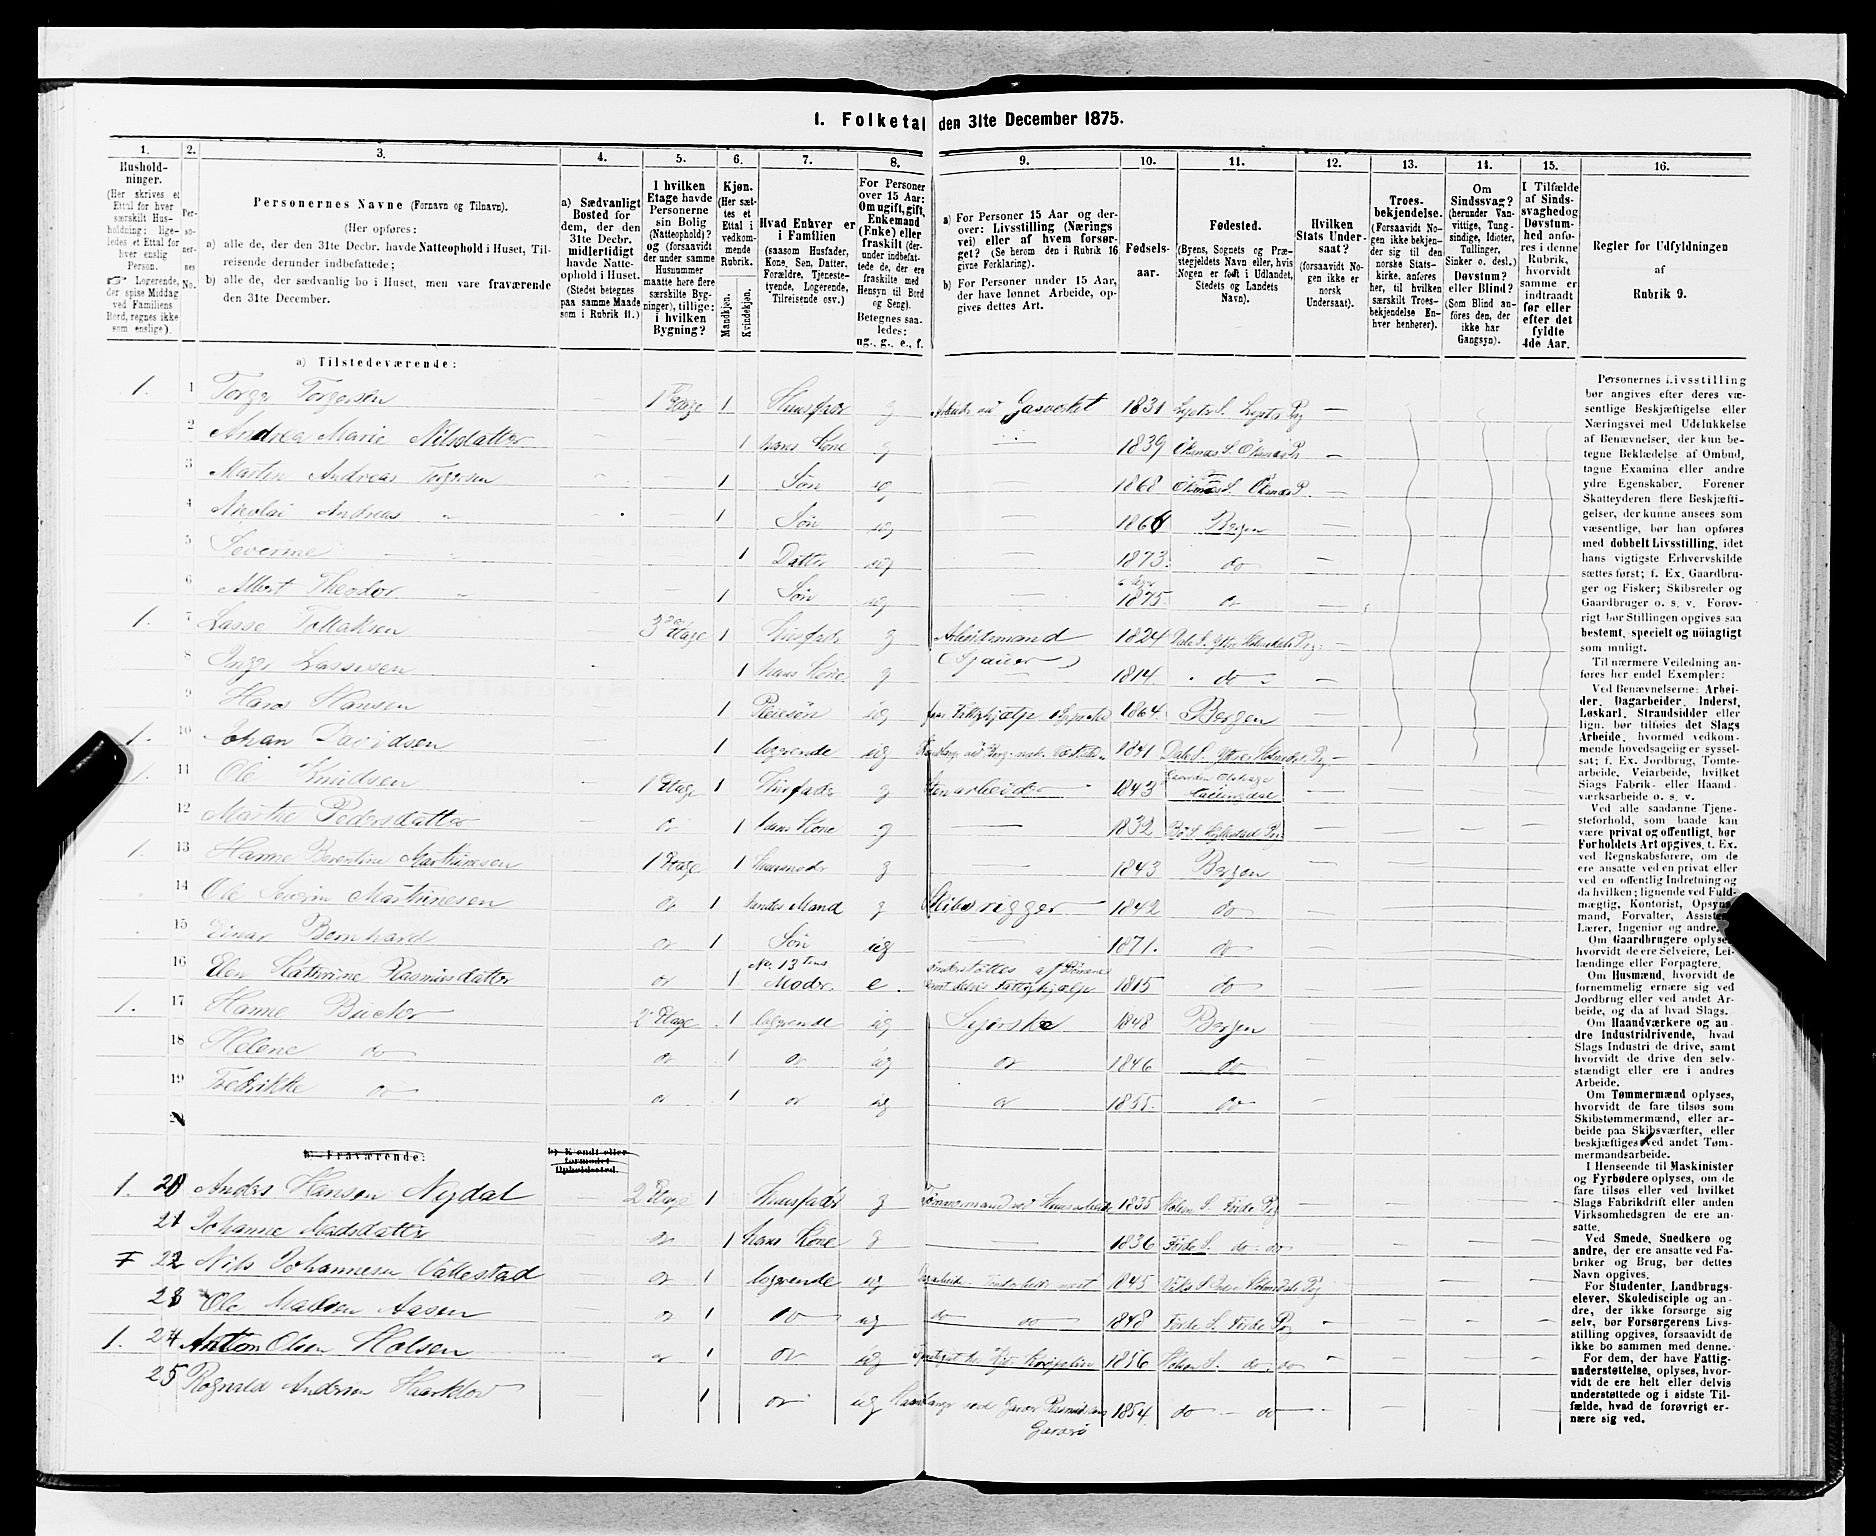 1. Folketal den 31te December 1875.
1. 2. 3. 4. 5. 6. 7. 8. 9. 10. 11. 12. 13. 14. 15. 16.
Hushold-
ninger.
(Her skrives et
Ettal for hver
særskilt Hus-
holdning; lige-
ledes et Ettal for
hver enslig
Person.
☞ Logerende,
der spise Middag
ved Familiens
Bord, regnes ikke
som enslige).
Per-
so-
ner-
nes
No.
Personernes Navne (Fornavn og Tilnavn).
(Her opføres:
a) alle de, der den 31te Decbr. havde Natteophold i Huset, Til-
reisende derunder indbefattede;
b) alle de, der sædvanlig bo i Huset, men vare fraværende
den 31te December.
a) Sædvanligt
Bosted for
dem, der den
31te Decbr.
midlertidigt
havde Natte-
ophold i Huset.
(Stedet betegnes
paa samme Maade
som i Rubrik 11.)
I hvilken
Etage havde
Personerne
sin Bolig
(Natteophold)?
og (forsaavidt
der under samme
Husnummer
maatte høre flere
særskilte Byg-
ninger), tillige:
i hvilken
Bygning?
Kjøn.
(Her sæt-
tes et
Ettal i
vedkom-
mende
Rubrik.
Mandkjøn.
Kvindekjøn.
Hvad Enhver er
i Familien
(saasom Husfader,
Kone, Søn, Datter,
Forældre, Tjeneste-
tyende, Logerende,
Tilreisende osv.)
For Personer
over 15 Aar:
Om ugift, gift,
Enkemand
(Enke) eller
fraskilt (der-
under indbefat-
tede de, der ere
fraskilte med
Hensyn til Bord
og Seng).
Betegnes saa-
ledes:
ug., g., e., f.
a) For Personer 15 Aar og der-
over: Livsstilling (Nærings
vei) eller af hvem forsør-
get? (Se herom den i Rubrik 16
givne Forklaring).
b) For Personer under 15 Aar,
der have lønnet Arbeide, op-
gives dettes Art.
Fødsels-
aar.
Fødested.
(Byens, Sognets og Præ-
stegjeldets Navn eller, hvis
Nogen er født i Udlandet,
Stedets og Landets
Navn).
Hvilken
Stats Under-
saat?
(forsaavidt No-
gen ikke er
norsk
Undersaat).
Troes-
bekjendelse.
(Forsaavidt No-
gen ikke bekjen-
der sig til den
norske Stats-
kirke, anføres
her, til hvilken
særskilt Troes-
bekjendelse En-
hver henhører).
Om
Sindssvag?
(herunder Van-
vittige, Tung-
sindige, Idioter,
Tullinger,
Sinker o. desl.)
Døvstum?
eller Blind?
(Som Blind an-
föres den, der
ikke har
Gangsyn).
I Tilfælde
af Sinds-
svaghed og
Døvstum-
hed anfø-
res i denne
Rubrik,
hvorvidt
samme er
indtraadt
før eller
efter det
fyldte
4de Aar.
Regler for Udfyldningen
af
Rubrik 9.
a) Tilstedeværende:
1. 1 Torger Torgersen 1 Etage 1 Huusfader g Arbeider ved Gasverket 1831
2 Andrea Marie Nilsdatter 1 hans Kone g 1839
3 Martin Andreas Torgersen 1 Søn ug 1868
4 Nicolai Andreas 1 Søn ug Bergen
5 Severine 1 Datter ug 1873. do
6 Albert Theodor 1 Søn ug 1875. do
1. 7 Lasse Tollaksen Etage 1 Huusfader g Arbeidsmand 1824
(Sjauer)
8 Inger Lassesen 1 hans Kone g 1814. do
9 Hans Hansen 1 Pleiesön ug 1864. Bergen
1. 10 Johan Davidsen 1 logerende ug 1841
1. 11 Ole Knudsen 1 Etage 1 Huusfader g Stenarbeider 1843
12 Marthe Pedersdatter do 1 hans Kone g 1832
1. 13 Hanne Berentine Marthinesen 1 Etage 1 Huusmoder g 1843 Bergen
14 Ole Severin Marthinesen do 1 hendes Mand g Skibsrigger 1842 do
15 Einar Bernhard do 1 Søn ug 1871. do
16 Elen Kathrine Rasmusdatter do 1 No. 13 tens Moder. e. understøttes af Sønnen 1815 do
1. 17 Hanne Bucher 2 Etage 1 logerende ug Syerske 1848 Bergen
18 Helene do do 1 do ug do 1846 do
19 Fredrikke do do 1 do ug do 1855. do
b) Fraværende:
b) Kjendt eller
formodet
Opholdssted.
1. 20 Anders Hansen Nydal 2 Etage 1 Huusfader g 1835 Holsen S. Førde Pg
21 Johanne Madsdatter do 1 hans Kone g 1836 Førde S. do do
22 Nils Johannesen Vallestad do 1 logerende ug 1845
23 Ole Madsen Aasen do 1 do ug do do 1848 Førde S. Førde Pg
1. 24 Anton Olsen Holsen do 1 do ug Holsen S. do do
25 Rognald Andersen Haarklov 1 do ug 1854. do do
Personernes Livsstilling
bør angives efter deres væ-
sentlige Beskjæftigelse eller
Næringsvei med Udelukkelse
af Benævnelser, der kun be-
tegne Beklædelse af Ombud,
tagne Examina eller andre
ydre Egenskaber. Forener
Skatteyderen flere Beskjæfti-
gelser, der kunne ansees som
væsentlige, bør han opføres
med dobbelt Livsstilling, idet
hans vigtigste Erhvervskilde
sættes først; f. Ex. Gaardbru-
ger og Fisker; Skibsreder og
Gaardbruger o. s. v. Forøv-
rigt bør Stillingen opgives saa
bestemt, specielt og nöiagtigt
som muligt.
Til nærmere Veiledning an-
føres her endel Exempler:
Ved Benævnelserne: Arbei-
der, Dagarbeider, Inderst,
Løskarl, Strandsidder eller
lign. bør tilføies det Slags
Arbeide, hvormed vedkom-
mende hovedsagelig er syssel-
sat; f. Ex. Jordbrug, Tomte-
arbeide, Veiarbeide, hvilket
Slags Fabrik- eller Haand-
værksarbeide o. s. v.
Ved alle saadanne Tjene-
steforhold, som baade kan
være privat og offentligt, bør
Forholdets Art opgives, t. Ex.
ved Regnskabsførere, om de
ere ansatte ved en privat eller
ved en offentlig Indretning og
da hvilken; lignende ved Fuld-
mægtig, Kontorist, Opsyns-
mand, Forvalter, Assistent,
Lærer, Ingeniør og andre.
Om Gaardbrugere oplyses,
hvorvidt de ere Selveiere, Lei-
lændinge eller Forpagtere.
Om Husmænd, hvorvidt de
fornemmelig ernære sig ved
Jordbrug eller ved andet Ar-
beide, og da af hvad Slags.
Om Haandværkere og an-
dre Industridrivende, hvad
Slags Industri de drive, samt
hvorvidt de drive den selv-
stændigt eller ere i andres
Arbeide.
Om Tømmermænd oplyses,
hvorvidt de fare tilsøs som
Skibstømmermænd, eller ar-
beide paa Skibsværfter, eller
beskjæftiges ved andet Tøm-
mermandsarbeide.
I Henseende til Maskinister
og Fyrbødere oplyses, om de
fare tilsøs eller ved hvilket
Slags Fabrikdrift eller anden
Virksomhedsgren de ere an-
satte.
Ved Smede, Snedkere og
andre, der ere ansatte ved Fa-
briker og Brug, bør dettes
Navn opgives.
For Studenter, Landbrugs-
elever, Skoledisciple og an-
dre, der ikke forsørge sig
selv, bør Forsørgerens Livs-
stilling opgives, forsaavidt de
ikke bo sammen med denne.
For dem, der have Fattig-
understøttelse, oplyses, hvor-
vidt de ere helt eller delvis
understøttede og i sidste Til-
fælde, hvad de forøvrigt er-
nære sig ved.